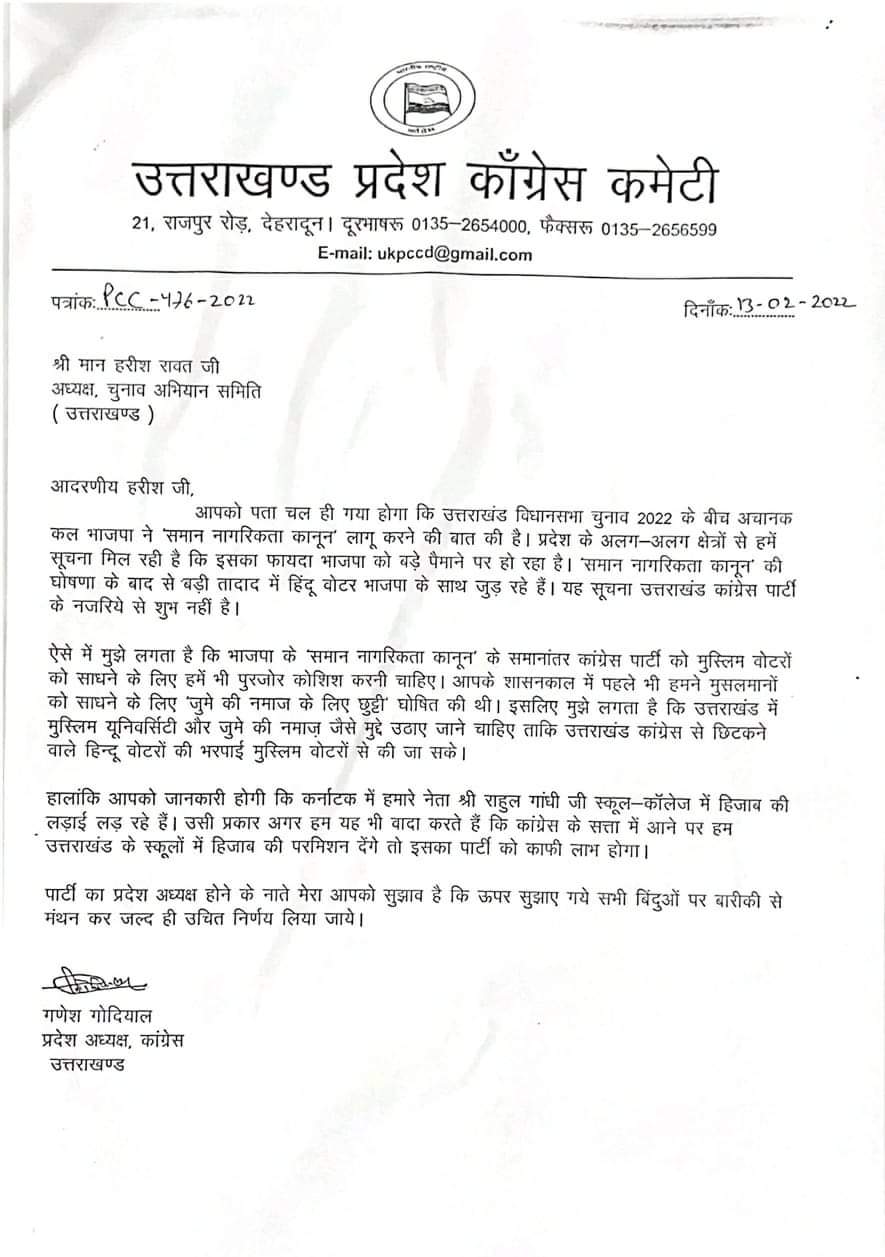 भारतीय राष्ट्रीय
उत्तराखण्ड प्रदेश काँग्रेस कमेटी
21, राजपुर रोड़, देहरादून। दूरभाषरू 0135–2654000, फैक्सरू 0135–2656599
E-mail: ukpccd@gmail.com
पत्रांक: PCC-476-2022
दिनाँक: 13-02-2022
श्री मान हरीश रावत जी
अध्यक्ष, चुनाव अभियान समिति
( उत्तराखण्ड )
आदरणीय हरीश जी,
आपको पता चल ही गया होगा कि उत्तराखंड विधानसभा चुनाव 2022 के बीच अचानक
कल भाजपा ने 'समान नागरिकता कानून' लागू करने की बात की है। प्रदेश के अलग–अलग क्षेत्रों से हमें
सूचना मिल रही है कि इसका फायदा भाजपा को बड़े पैमाने पर हो रहा है। 'समान नागरिकता कानून' की
घोषणा के बाद से बड़ी तादाद में हिंदू वोटर भाजपा के साथ जुड़ रहे हैं। यह सूचना उत्तराखंड कांग्रेस पार्टी
के नजरिये से शुभ नहीं है।
ऐसे में मुझे लगता है कि भाजपा के 'समान नागरिकता कानून' के समानांतर कांग्रेस पार्टी को मुस्लिम वोटरों
को साधने के लिए हमें भी पुरजोर कोशिश करनी चाहिए। आपके शासनकाल में पहले भी हमने मुसलमानों
को साधने के लिए 'जुमे की नमाज के लिए छुट्टी' घोषित की थी। इसलिए मुझे लगता है कि उत्तराखंड में
मुस्लिम यूनिवर्सिटी और जुमे की नमाज़ जैसे मुद्दे उठाए जाने चाहिए ताकि उत्तराखंड कांग्रेस से छिटकने
वाले हिन्दू वोटरों की भरपाई मुस्लिम वोटरों से की जा सके।
हालांकि आपको जानकारी होगी कि कर्नाटक में हमारे नेता श्री राहुल गांधी जी स्कूल–कॉलेज में हिजाब की
लड़ाई लड़ रहे हैं। उसी प्रकार अगर हम यह भी वादा करते हैं कि कांग्रेस के सत्ता में आने पर हम
उत्तराखंड के स्कूलों में हिजाब की परमिशन देंगे तो इसका पार्टी को काफी लाभ होगा।
पार्टी का प्रदेश अध्यक्ष होने के नाते मेरा आपको सुझाव है कि ऊपर सुझाए गये सभी बिंदुओं पर बारीकी से
मंथन कर जल्द ही उचित निर्णय लिया जाये।
गणेश गोदियाल
प्रदेश अध्यक्ष, कांग्रेस
उत्तराखण्ड